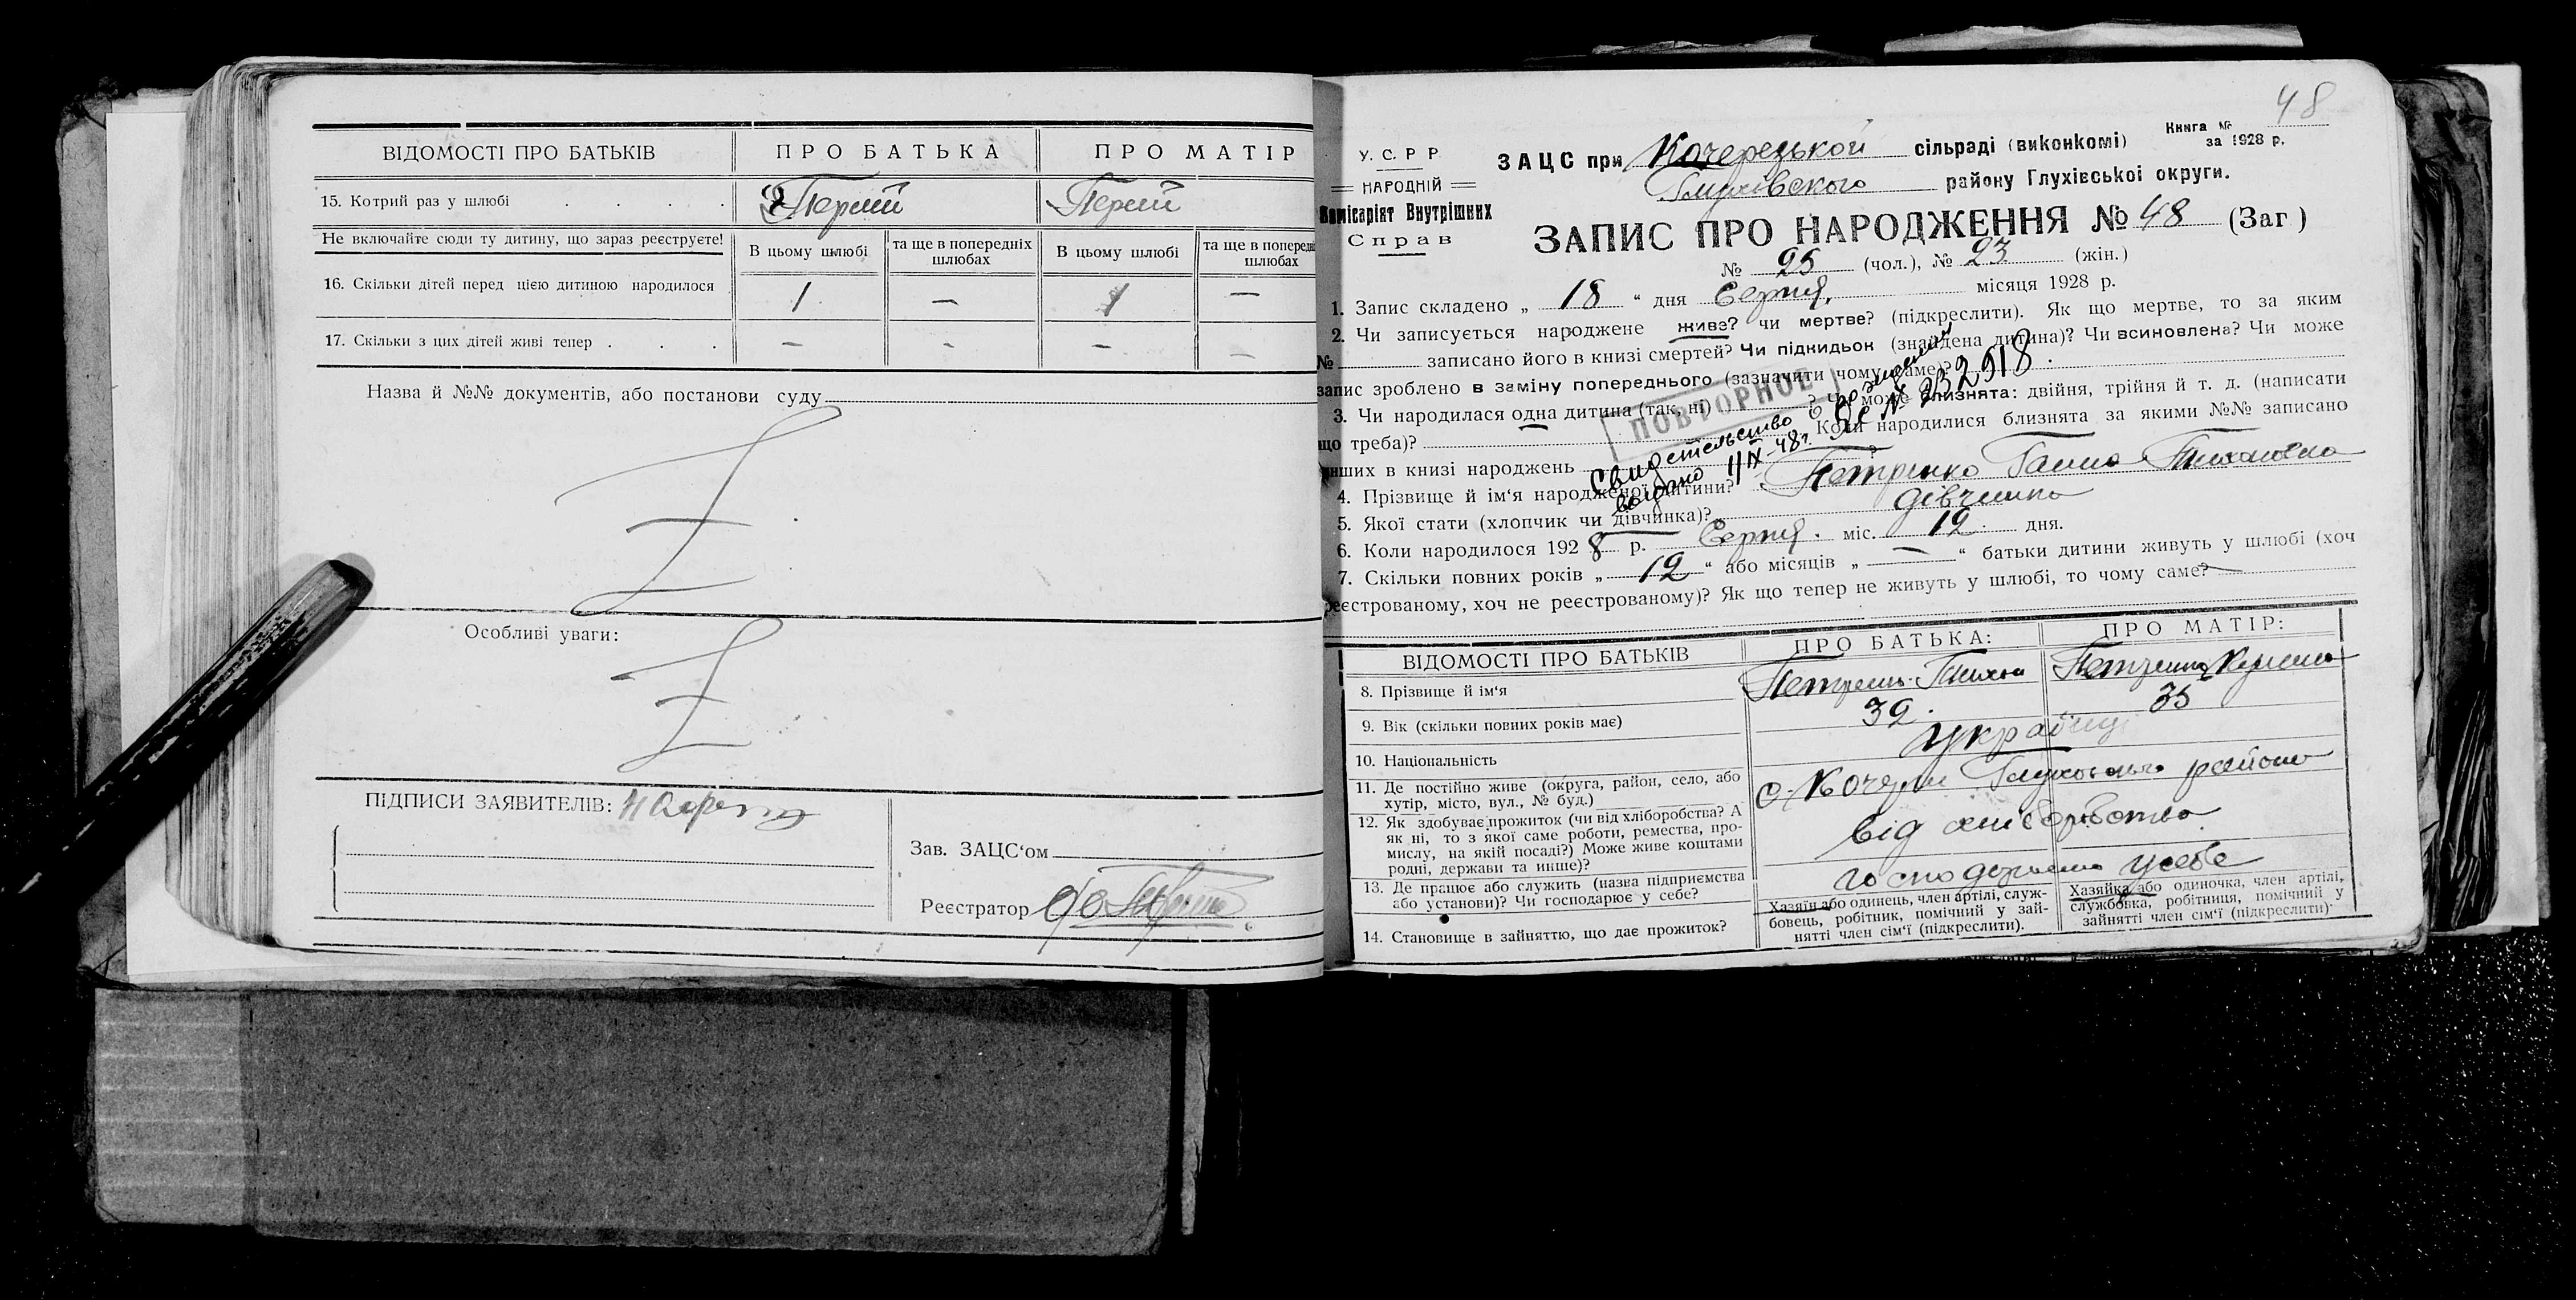 ВІДОМОСТІ ПРО БАТЬКІВ ПРО БАТЬКА ПРО МАТІР
15. Котрий раз у шлюбі Перший Перший
Не включайте сюди ту дитину, що зараз реєструєте! В цьому шлюбі та ще в попередніх шлюбах В цьому шлюбі та ще в поперед шлюбах
16. Скільки дітей перед цією дитиною народилося 1 — 1 —
17. Скільки з цих дітей живі тепер — - — —
Назва й №№ документів, або постанови суду
Особливі уваги:
ПІДПИСИ ЗАЯВИТЕЛІВ:
Зав. ЗАЦС'ом
Реєстратор
48
У. С. Р Р
НАРОДНІЙ
Комісаріят Внутрішних
Справ
Книга №
за 1928 р.
ЗАЦС при Кочерецькой сільраді (виконкомі)
Глухівского району Глухівської округи.
ЗАПИС ПРО НАРОДЖЕННЯ № 48 (Заг)
№ 25 (чол.), № 23 (жін.)
1. Запис складено „ 18 “ дня Серпня місяця 1928 р.
2. Чи записується народжене живе? чи мертве? (підкреслити). Як що мертве, то за яким
№ записано його в книзі смертей? Чи підкидьок (знайдена дитина)? Чи всиновлена? Чи може
запис зроблено в заміну попереднього (зазначити чому саме)?
3. Чи народилася одна дитина (так, ні) ? Чи може близнята: двійня, трійня й т. д. (написати
що треба)? Коли народилися близнята за якими №№ записано
инших в книзі народжень ?
ПОВТОРНОЕ
Свидетельство о рождении
выдано 11/IX-48г. № 232918.
4. Прізвище й ім'я народженої дитини? Петренко Ганна Тихановна
5. Якої стати (хлопчик чи дівчинка)? дівчинка
6. Коли народилося 1928 р. Серпня міс. 12 дня.
7. Скільки повних років „ 12 “ або місяців „ — “ батьки дитини живуть у шлюбі (хоч
реєстрованому, хоч не реєстрованому)? Як що тепер не живуть у шлюбі, то чому саме? —
ВІДОМОСТІ ПРО БАТЬКІВ ПРО БАТЬКА: ПРО МАТІР:
8. Прізвище й ім'я Петренко Тихон Петренко
9. Вік (скільки повних років має) 39 35
10. Національність Українці
11. Де постійно живе (округа, район, село, або
хутір, місто, вул., № буд.) с. Кочерги Глухівського району
12. Як здобуває прожиток (чи від хліборобства? А
як ні, то з якої саме роботи, ремества, про-
мислу, на якій посаді?) Може живе коштами
родні, держави та инше)? від хліборобства
13. Де працює або служить (назва підприємства
або установи)? Чи господарює у себе? у себе
14. Становище в зайняттю, що дає прожиток?
Хазяїн або одинець, член артілі, служ-
бовець, робітник, помічний у зай-
нятті член сім'ї (підкреслити).
Хазяйка або одиночка, член артілі,
службовка, робітниця, помічний у
зайнятті член сім'ї (підкреслити).